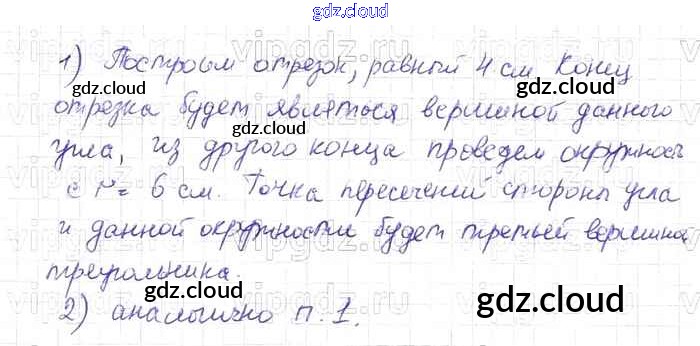 gdz.cloud
1) Построим отрезок, равный 4 см Конец
gdz.cloud
отрезка будет являться вершиной данного
gdz.cloud
угла, из другого конца проведем окружность
с r = 6 см. Точка пересечений стороны угла
и данной окружности будет третьей вершина
треугольника.
gdz.cloud
gdz.cloud
2) аналогично п. 1.
gdz.cloud